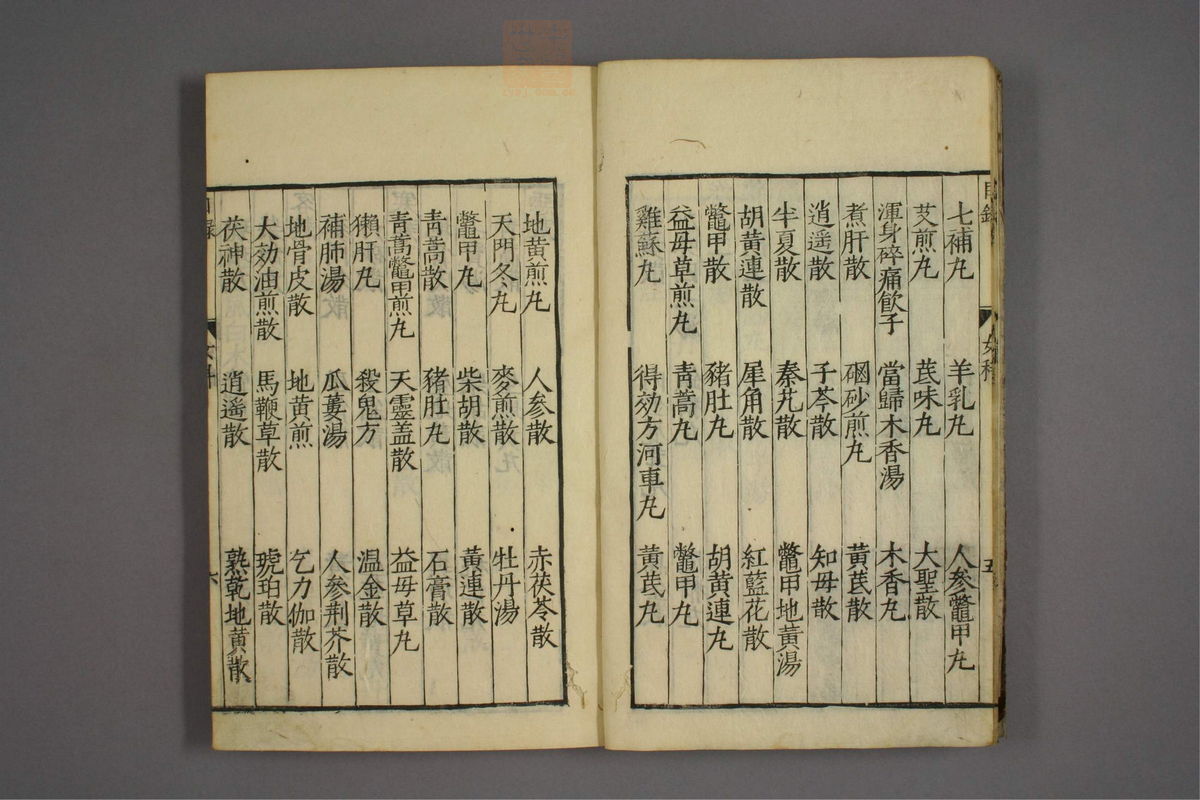 七補丸 羊乳丸 人參鼈甲丸
艾煎丸 茋味丸 大聖散
渾身碎痛飲子 當歸木香湯 木香丸
煮肝散 硇砂煎丸 黃茋散
逍遥散 子芩散 知母散
半夏散 秦艽散 鼈甲地黃湯
胡黃連散 犀角散 紅藍花散
鼈甲散 豬肚丸 胡黃連丸
益母草煎丸 青蒿丸 鼈甲丸
雞蘇丸 得効方河車丸 黃茋丸
地黃煎丸 人參散 赤茯苓散
天門冬丸 麥煎散 牡丹湯
鼈甲丸 柴胡散 黃連散
青蒿散 豬肚丸 石膏散
青蒿鼈甲煎丸 天靈盖散 益母草丸
獺肝丸 殺鬼方 温金散
補肺湯 瓜蔞湯 人參荆芥散
地骨皮散 地黃煎 乞力伽散
大効油煎散 馬鞭草散 琥珀散
茯神散 逍遥散 熟乾地黃散